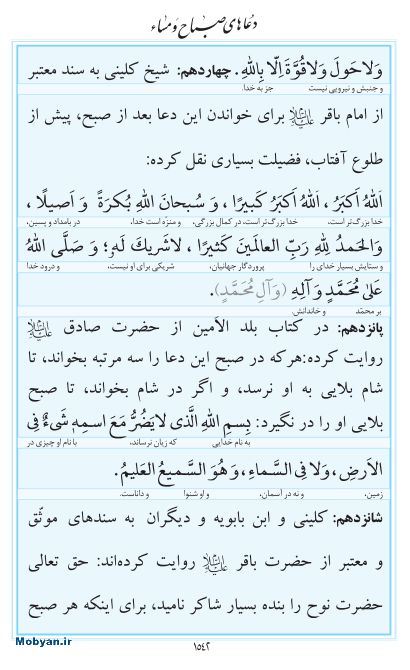 دعاهای صباح و مساء
وَلاحَولَ وَلاقُوَّةَ اِلّا بِاللهِ. چهاردهم: شیخ کلینی به سند معتبر
و جنبش و نیرویی نیست جز به خدا.
از امام باقر علیه‌السلام برای خواندن این دعا بعد از صبح، پیش از
طلوع آفتاب، فضیلت بسیاری نقل کرده:
اَللهُ اَکبَرُ ، اَللهُ اَکبَرُ کَبیرًا ، وَ سُبحانَ اللهِ بُکرَةً وَ اَصیلًا ،
خدا بزرگ‌تر است، خدا بزرگ‌تر است، در کمال بزرگی، و منزّه است خدا، در بامداد و پسین،
وَالحَمدُ لِلهِ رَبِّ العالَمینَ کَثیرًا ، لاشَریكَ لَهُ؛ وَ صَلَّی اللهُ
و ستایش بسیار خدای را پروردگار جهانیان، شریکی برای او نیست، و درود خدا
عَلیٰ مُحَمَّدٍ وَ آلِهِ (وَ آلِ مُحَمَّدٍ).
بر محمّد و خاندانش.
پانزدهم: در کتاب بلد الاَمین از حضرت صادق علیه‌السلام
روایت کرده:هرکه در صبح این دعا را سه مرتبه بخواند، تا
شام بلایی به او نرسد، و اگر در شام بخواند، تا صبح
بلایی او را در نگیرد: بِسمِ اللهِ الَّذی لایَضُرُّ مَعَ اسمِهِ شَیءٌ فِی
به نام خدایی که زیان نرساند، با نام او چیزی در
الاَرضِ، وَلا فِی السَّماءِ، وَ هُوَ السَّمیعُ العَلیمُ.
زمین، و نه در آسمان، و او شنوا و داناست.
شانزدهم: کلینی و ابن بابویه و دیگران به سندهای موثّق
و معتبر از حضرت باقر علیه‌السلام روایت کرده‌اند: حق تعالی
حضرت نوح را بنده بسیار شاکر نامید، برای اینکه هر صبح
Mobyan.ir
۱۵۴۲